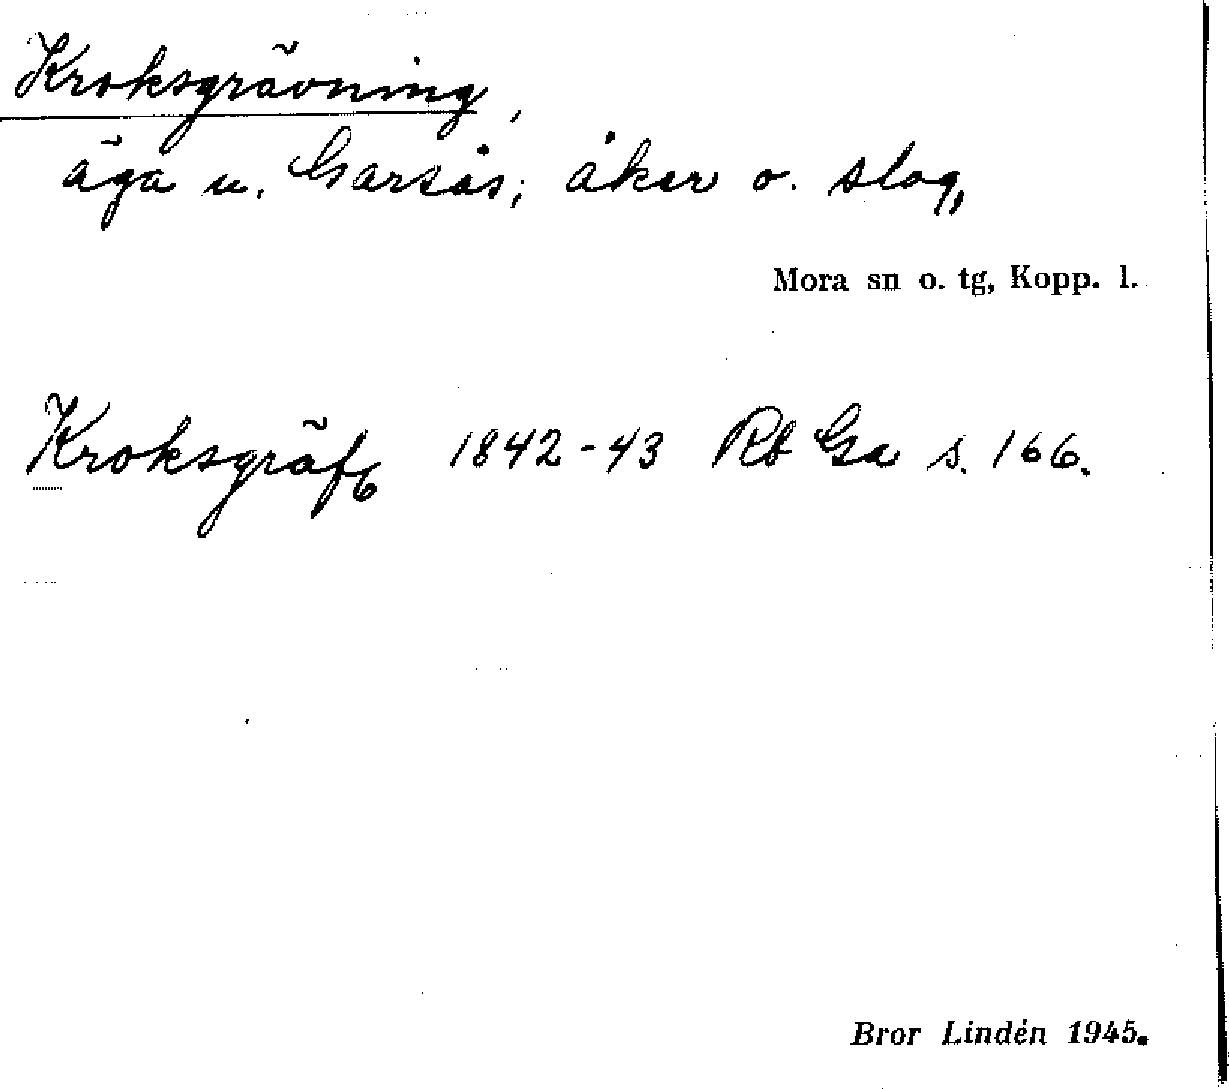 Kroksgrävning,
äga u. Garsås; åker o. slog,
Mora sn o. tg, Kopp. l.
Kroksgräfg 1842-43 Rb Ga s. 166.
Bror Lindén 1945.